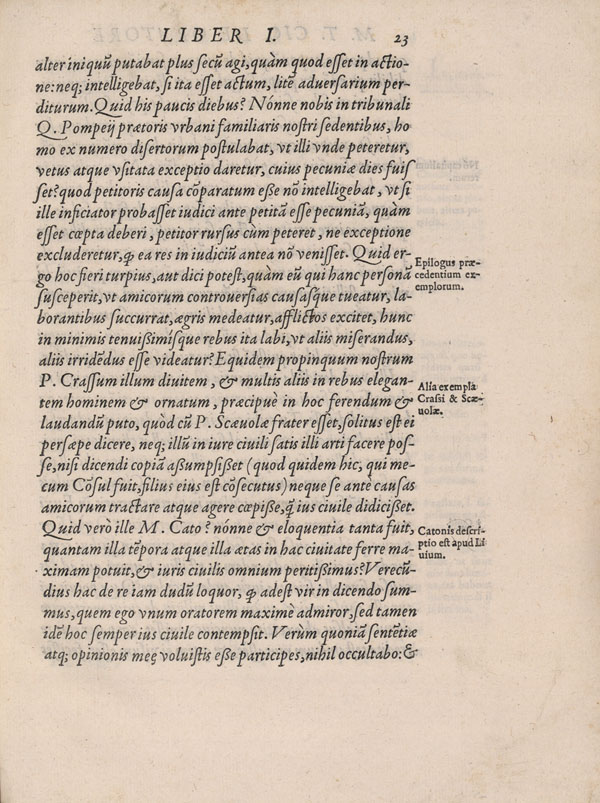 LIBER I. 23
alter iniquũ putabat plus secũ agi, quàm quod eſſet in actio-
ne: neq; intelligebat, ſi ita eſſet actum, litẽ aduerſarium per-
diturum. Quid his paucis diebus? Nónne nobis in tribunali
Q. Pompeij prætoris vrbani familiaris noſtri ſedentibus, ho
mo ex numero diſertorum poſtulabat, vt illi vnde peteretur,
vetus atque vſitata exceptio daretur, cuius pecuniæ dies fuiſ
ſet? quod petitoris cauſa cõparatum eſſe nõ intelligebat, vt ſi
ille inficiator probaſſet iudici ante petitã eſſe pecuniã, quàm
eſſet cœpta deberi, petitor rurſus cùm peteret, ne exceptione
excluderetur, ꝙ ea res in iudiciũ antea nõ veniſſet. Quid er-
go hoc fieri turpius, aut dici poteſt, quàm eũ qui hanc perſonã
ſuſceperit, vt amicorum controuerſias cauſáſque tueatur, la-
borantibus ſuccurrat, ægris medeatur, afflictos excitet, hunc
in minimis tenuiſſimiſque rebus ita labi, vt aliis miſerandus,
aliis irridẽdus eſſe videatur? Equidem propinquum noſtrum
P. Craſſum illum diuitem, & multis aliis in rebus elegan-
tem hominem & ornatum, præcipuè in hoc ferendum &
laudandũ puto, quòd cũ P. Scæuolæ frater eſſet, ſolitus eſt ei
perſæpe dicere, neq; illũ in iure ciuili ſatis illi arti facere poſ-
ſe, niſi dicendi copiã aſſumpſiſſet (quod quidem hic, qui me-
cum Cõſul fuit, filius eius eſt cõſecutus) neque ſe antè cauſas
amicorum tractare atque agere cœpiſſe, ꝗ̃ ius ciuile didiciſſet.
Quid verò ille M. Cato? nónne & eloquentia tanta fuit,
quantam illa tẽpora atque illa ætas in hac ciuitate ferre ma-
ximam potuit, & iuris ciuilis omnium peritiſſimus? Verecũ-
diùs hac de re iam dudũ loquor, ꝙ adeſt vir in dicendo ſum-
mus, quem ego vnum oratorem maximè admiror, ſed tamen
idẽ hoc ſemper ius ciuile contempſit. Verùm quoniã ſentẽtiæ
atq; opinionis meę voluiſtis eſſe participes, nihil occultabo: &
Epilogus præ-
cedentium ex-
emplorum.
Alia exempla
Craſsi & Scæ-
uolæ.
Catonis deſcri-
ptio eſt apud Li
uium.